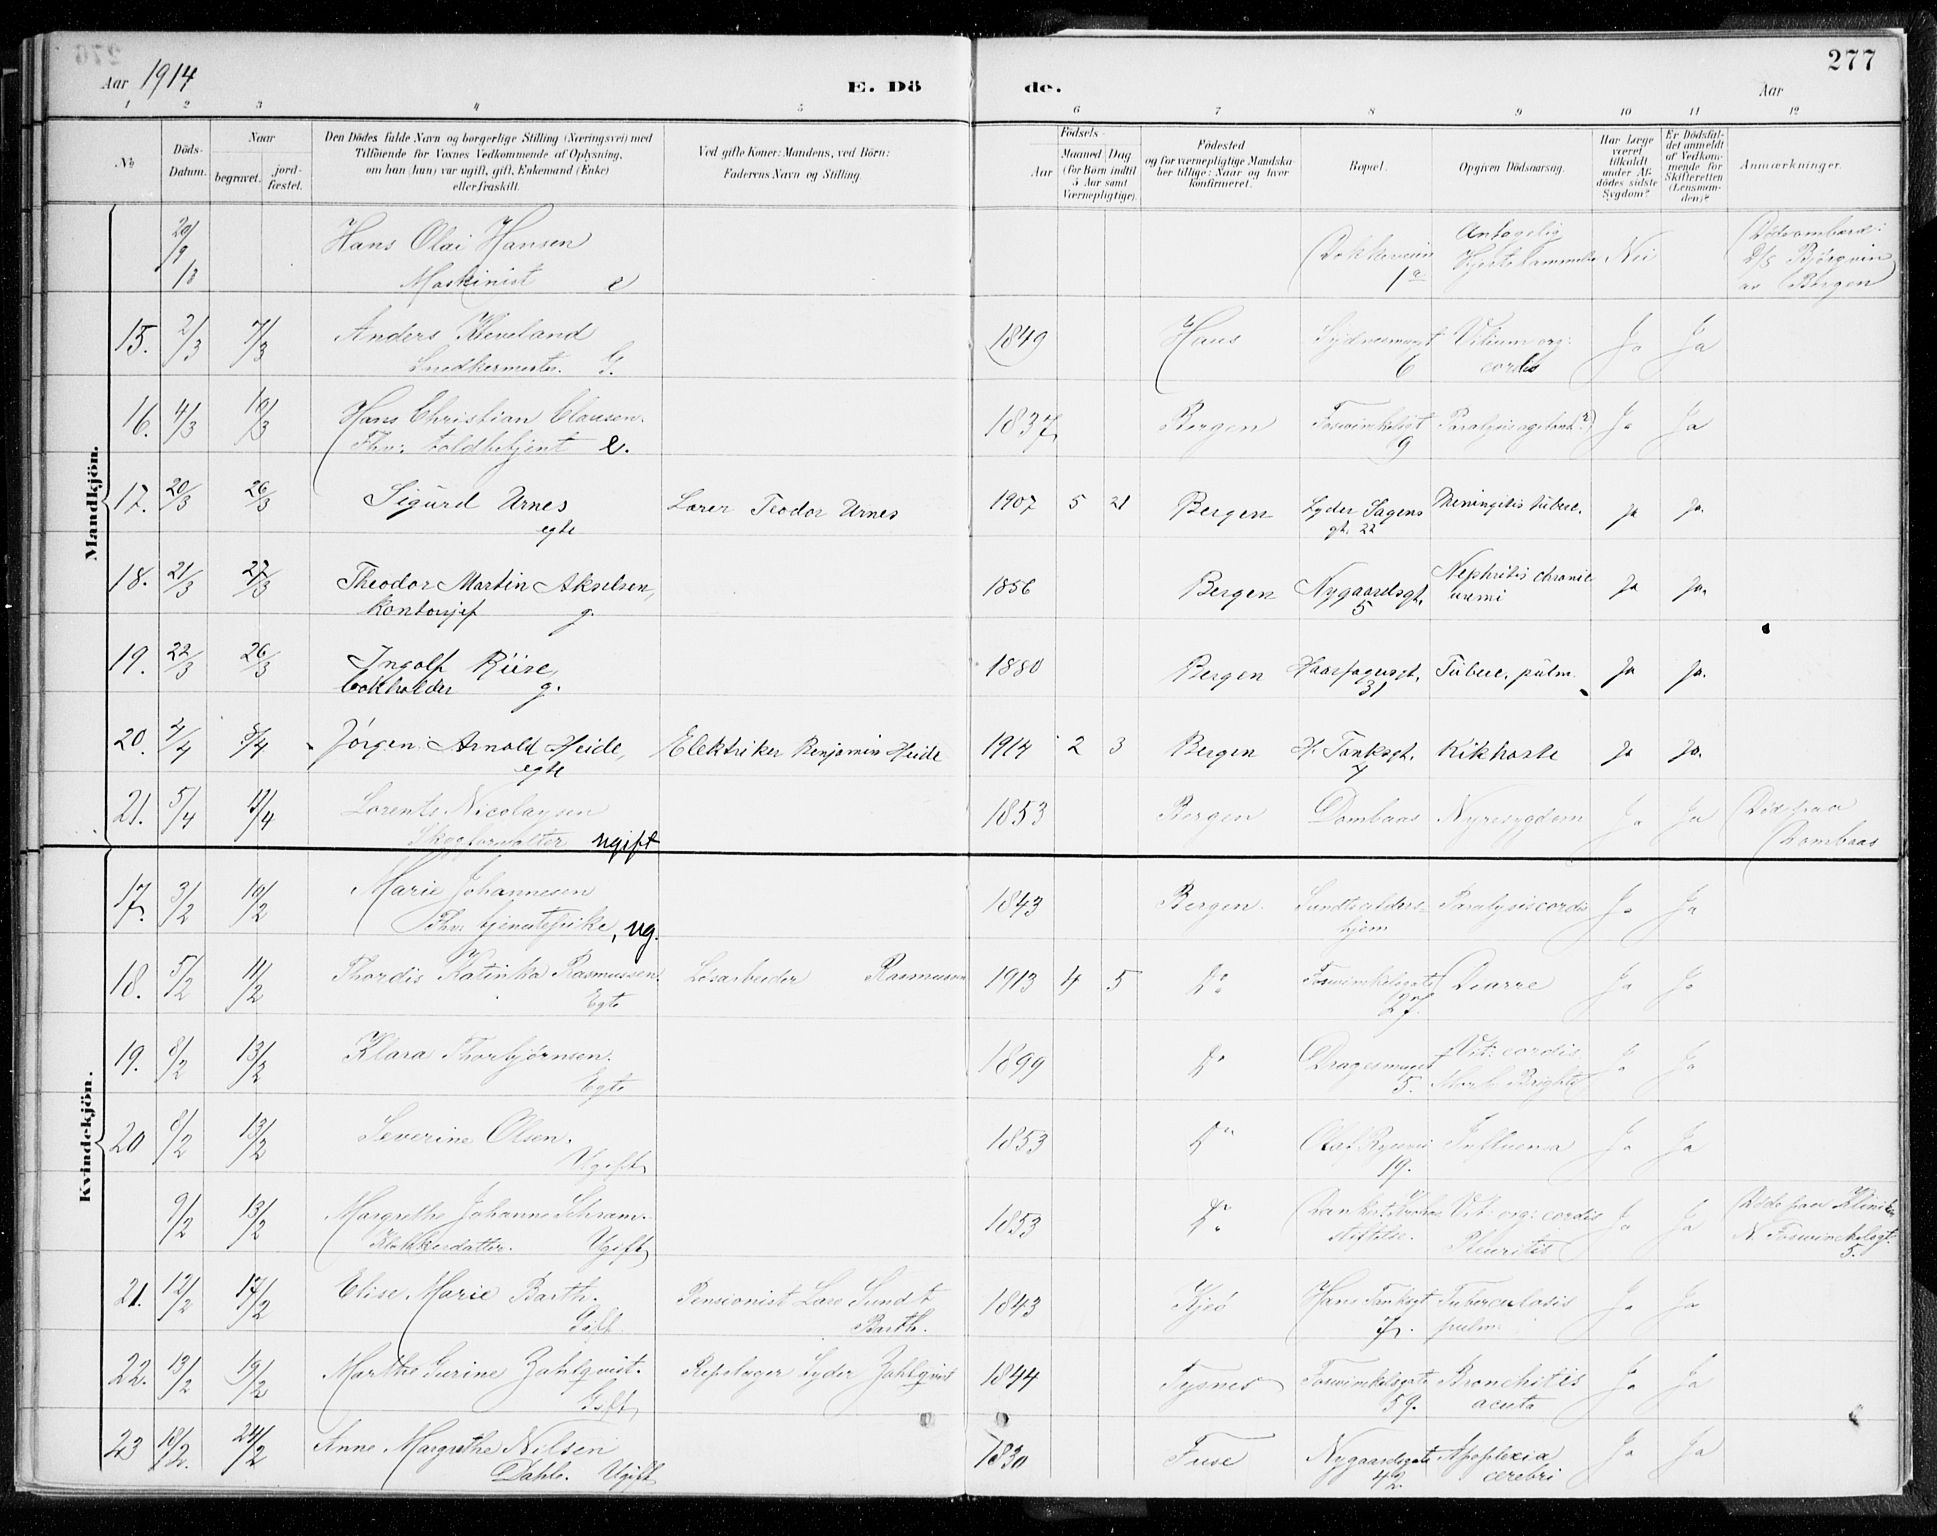 277
Aar 1914
E. Dö de.
Aar
1 2 3 4 5 6 7 8 9 10 11 12
No
Döds-Datum.
Naar begravet. jord-fæstet.
Den Dödes fulde Navn og borgerlige Stilling (Næringsvei) med
Tilföiende for Voxnes Vedkommende af Oplysning,
om han (hun) var ugift, gift, Enkemand (Enke)
eller fraskilt.
Ved gifte Koner: Mandens, ved Börn:
Faderens Navn og Stilling.
Födsels-
Aar
Maaned Dag
(for Børn indtil 5 Aar samt Værnepligtige).
Födested
og for værnepligtige Mandska-
ber tillige: Naar og hvor
konfirmeret.
Bopæl.
Opgiven Dödsaarsag.
Har Læge været tilkaldt under Af-dödes sidste Sygdom?
Er Dödsfal-det anmeldt af Vedkom-mende for Skifteretten (Lensman-den)?
Anmærkninger.
Mandkjön.
20/9 13 Hans Olai Hansen Dokkeveien Antagelig Hjertelammelse Nei Död ombord i
Maskinist e 1a D/S Bjørgvin
av Bergen
15. 2/3 7/3 Anders Kleveland 1849 Haus Sydnessmuget Vitium org: Ja Ja
Snedkermester. G. 6 cordis
16. 4/3 10/3 Hans Christian Clausen. 1837 Bergen Foswinkelsgt Paralysis agitans(?) Ja Ja
Fhv: toldbetjent e. 9
17. 20/3 26/3 Sigurd Urnes Lærer Teodor Urnes 1907 5 21 Bergen Lyder Sagens Meningitis tuberc. Ja Ja.
egte gt. 22
18. 21/3 27/3 Theodor Martin Akselsen, 1856 Bergen Nygaardsgt. Nephritis chronic Ja Ja.
Kontorsjef g. 5 uremi
19. 22/3 26/3 Ingolf Riise, 1880 Bergen Haarfagresgt. Tuberc. pulm. Ja Ja.
bokholder g. 31
20. 2/4 8/4 Jörgen Arnold Heide, Elektriker Benjamin Heide 1914 2 3 Bergen H. Tanksgt. Kikhoste Ja Ja.
egte 7
21. 5/4 11/4 Lorents Nicolaysen 1853 Bergen Dombaas Nyresygdom Ja Ja Död paa
Skogforvalter ugift Dombaas
Kvindekjön.
17. 3/2 10/2 Marie Johannesen 1843 Bergen. Sundts alders- Paralysis cordis Ja Ja
Fhv: tjenestepike, ug. hjem
18. 5/2 11/2 Thordis Katinka Rasmussen. Løsarbeider Rasmussen 1913 4 5 Do Foswinkelsgate Diarre Ja Ja
Egte 27.
19. 8/2 13/2 Klara Thorbjørnsen. 1899 Do Dragesmuget Vit: cordis. Ja Ja
Egte 5. Morb. Brightii
20 8/2 13/2 Severine Olsen. 1853 Do Olaf Ryesvei Influensa Ja Ja
Ugift 19.
9/2 13/2 Margrethe Johanne Schram. 1853 Do Dankert Krohns Vit: org: cordis Ja Ja Döde paa Kliniken
Klokkerdatter. Ugift stiftelse. Pleuritis N. Foswinckelsgt.
5.
21. 12/2 17/2 Elise Marie Barth. Pensionist Lars Sundt 1843 Kjeö Hans Tanksgt Tuberculosis Ja Ja
Gift Barth. 7. pulm:
22. 13/2 19/2 Marthe Gurine Zahlqvist. Repslager Lyder Zahlqvist 1844 Tysnes Foswinkelsgate Bronchitis Ja Ja
Gift 59. acuta
23 18/2. 24/2 Anne Margrethe Nilsen 1830 Fuse Nygaardsgate Apoplexia Ja Ja
Dahle. Ugift 42. cerebri